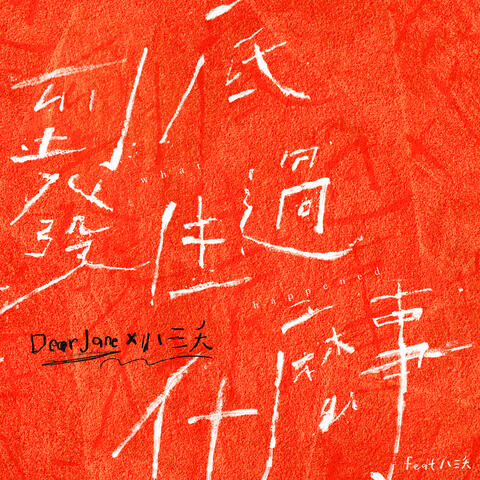 到底
what
發生過
happened
Dear Jane x 八三夭
什麼事
feat 八三夭